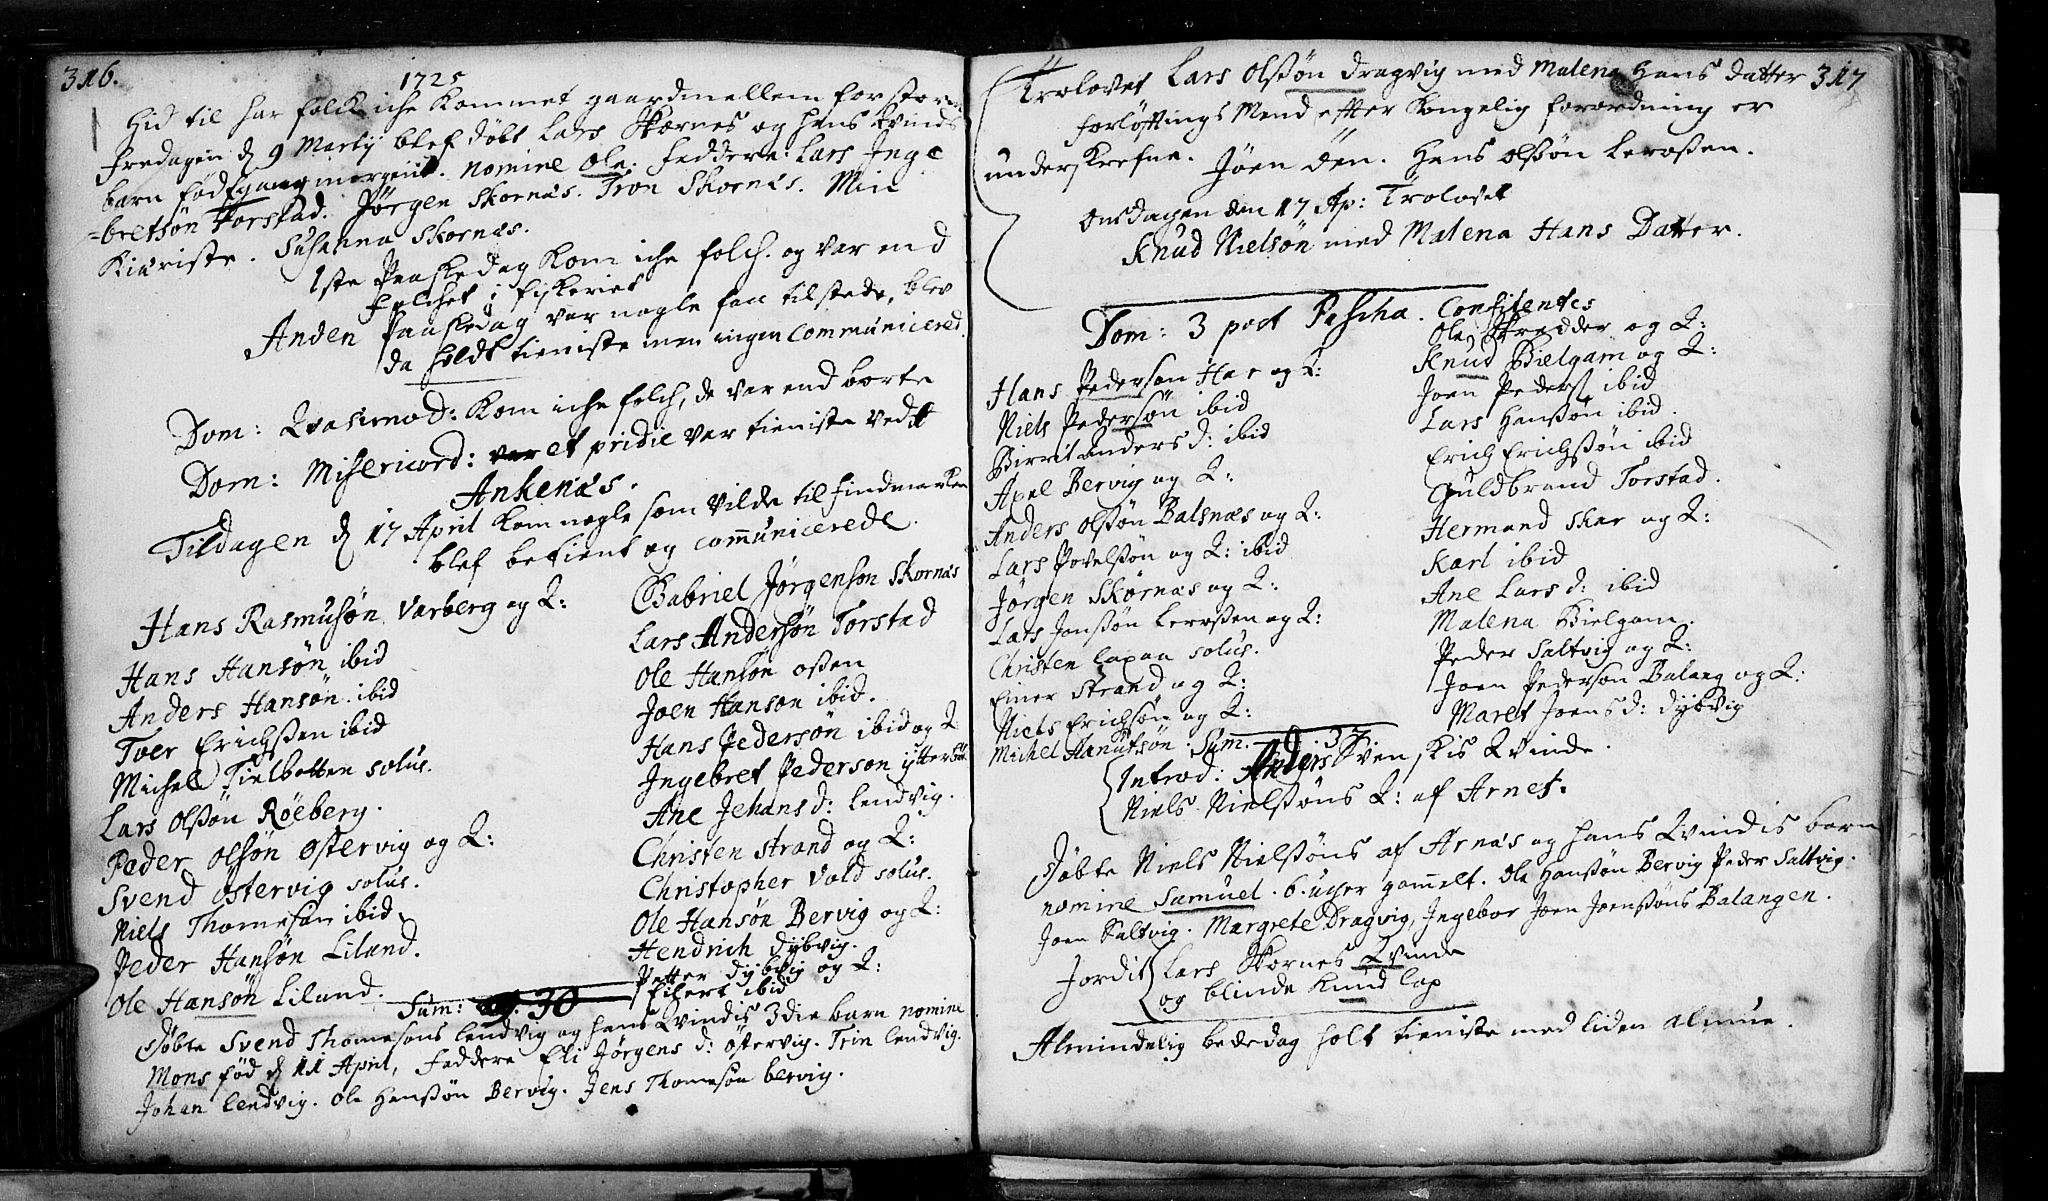 316.
1725
Hid til har folck iche kommet gaardmellem for storm
Fredagen d 9 Martij blef döbt Lars Skornes og hans Qvinds
barn föd igaar morgens. nomine Ole. Faddere: Lars Inge
=bretsön Torstad. Jörgen Skornæs. Tron Skornæs. Min
Kiæriste. Susanna Skornæs.
1ste Paaskedag kom iche folch. og var end
folchet i fiskeriet
Anden Paaskedag var nogle faa tilstede, blev
da holdt tieniste men ingen Communicered.
Dom: Qvasimod: kom iche folch, de var end borte
Dom: Misericord: et pridie var tieniste vedt
Ankenæs.
Tisdagen d 17 April kom nogle som vilde til findmarken
blef betient og communicerede.
Hans Rasmusön Varberg og Q:
Hans Hansön ibid
Anders Hansön ibid
Toer Erichssen ibid
Michel Tielbotten solus.
Lars Olssön Röeberg.
Peder Olsön Ostervig og Q:
Svend Ostervig solus.
Niels Thomesön ibid
Peder Hansön Liland.
Ole Hansön Liland.
Gabriel Jörgenson Skornæs
Lars Andersön Torstad
Ole Hansön Ossen
Joen Hanson ibid.
Hans Pedersön ibid og Q
Ingebret Pederson
Ane Jehans d: Lendvig.
Christen Strand og Q:
Christopher Vold solus.
Ole Hansön Bervig og Q:
Hendrich Dybvig.
Petter Dybvig og Q:
Eilert ibid
Sum: 30
Döbte Svend Thomesons Lendvig og hans Qvindis 3die barn nomine
Mons föd d 11 April, Faddere Eli Jörgens d: Östervig. Trin Lendvig.
Johan Lendvig. Ole Hanssön Bervig. Jens Thomesön bervig.
317
Trolovet Lars Olssön Dragvig med Malena Hans datter
forlöftings Mend effter Kongelig forordning er
underskrefne. Jöen Öen. Hans Olssön Lerossen.
Onsdagen den 17 Ap: Trolovet
Knud Nielsön med Malena Hans Datter.
Dom: 3 post Pascha. Confitentes
Hans Pederson Har og Q:
Niels Pedersön ibid
Birrit Anders d: ibid
Axel Bervig og Q:
Anders Olssön Balsnæs og Q:
Lars Povelssön og Q: ibid
Jörgen Skörnæs og Q:
Lars Jonssön Lerossen og Q:
Christen Laxaa solus.
Einer Strand og Q:
Niels Erichsön og Q:
Michel Knutsön. Sum. 37
Ole Skredder og Q:
Knud Bielgam og Q:
Joen Peders ibid
Lars Hanssön ibid.
Erich Erichssön ibid
Guldbrand Torstad.
Hermand Skar og Q:
Karl ibid
Ane Lars d: ibid
Malena Bielgam.
Peder Saltvig og Q:
Joen Pederson Balang og Q:
Maret Joens d: Dybvig
Introd: Anders Svenskis Qvinde.
Niels Nielssöns Q: af Arnes.
Döbte Niels Nielssöns af Arnæs og hans Qvindis barn
nomine Samuel. 6. uger gammelt. Ole Hanssön Bervig Peder Saltvig.
Joen Saltvig. Margrete Dragvig, Ingebor Joen Joenssöns Balangen.
Jordit Lars Skornes Qvinde
og blinde Knud lap
Almindelig bededag holt tieniste med liden almue.